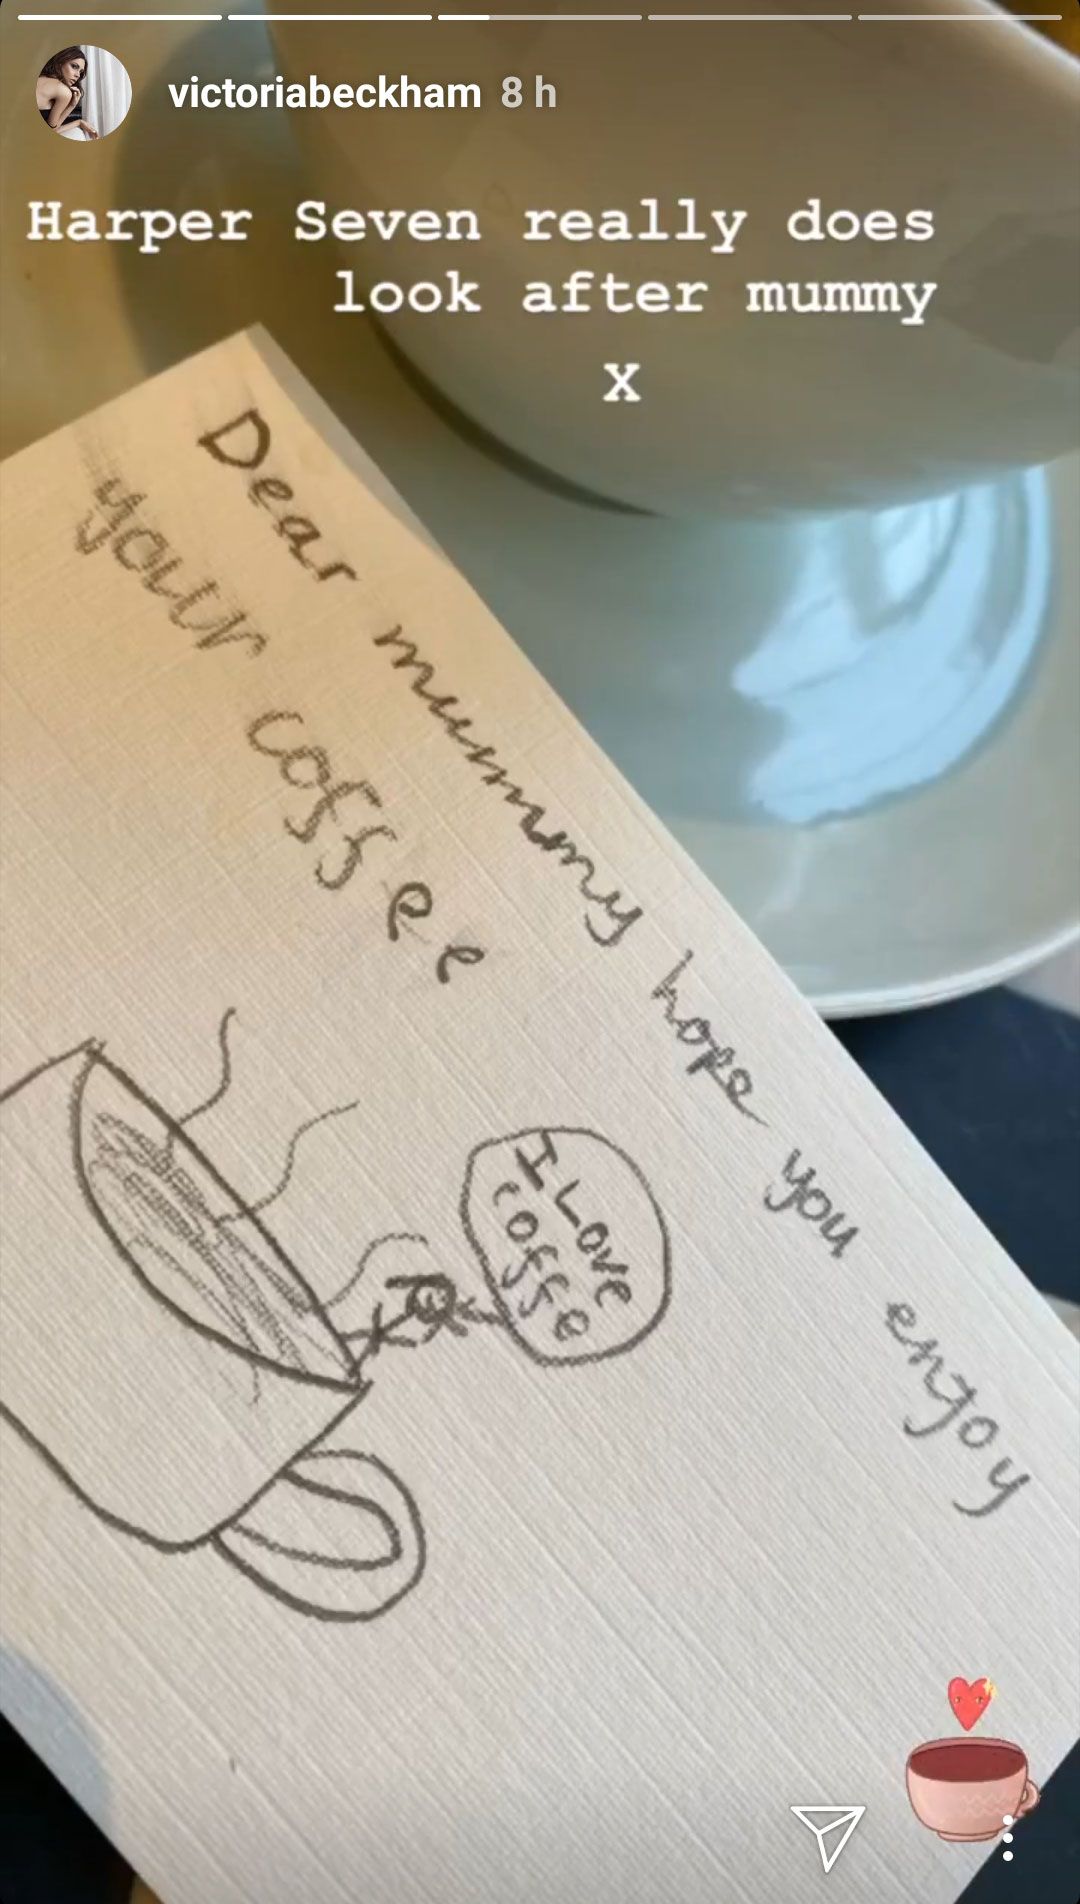 victoriabeckham 8 h
Harper Seven really does
look after mummy
x
Dear mummy hope you enjoy
your coffee
I Love
coffe